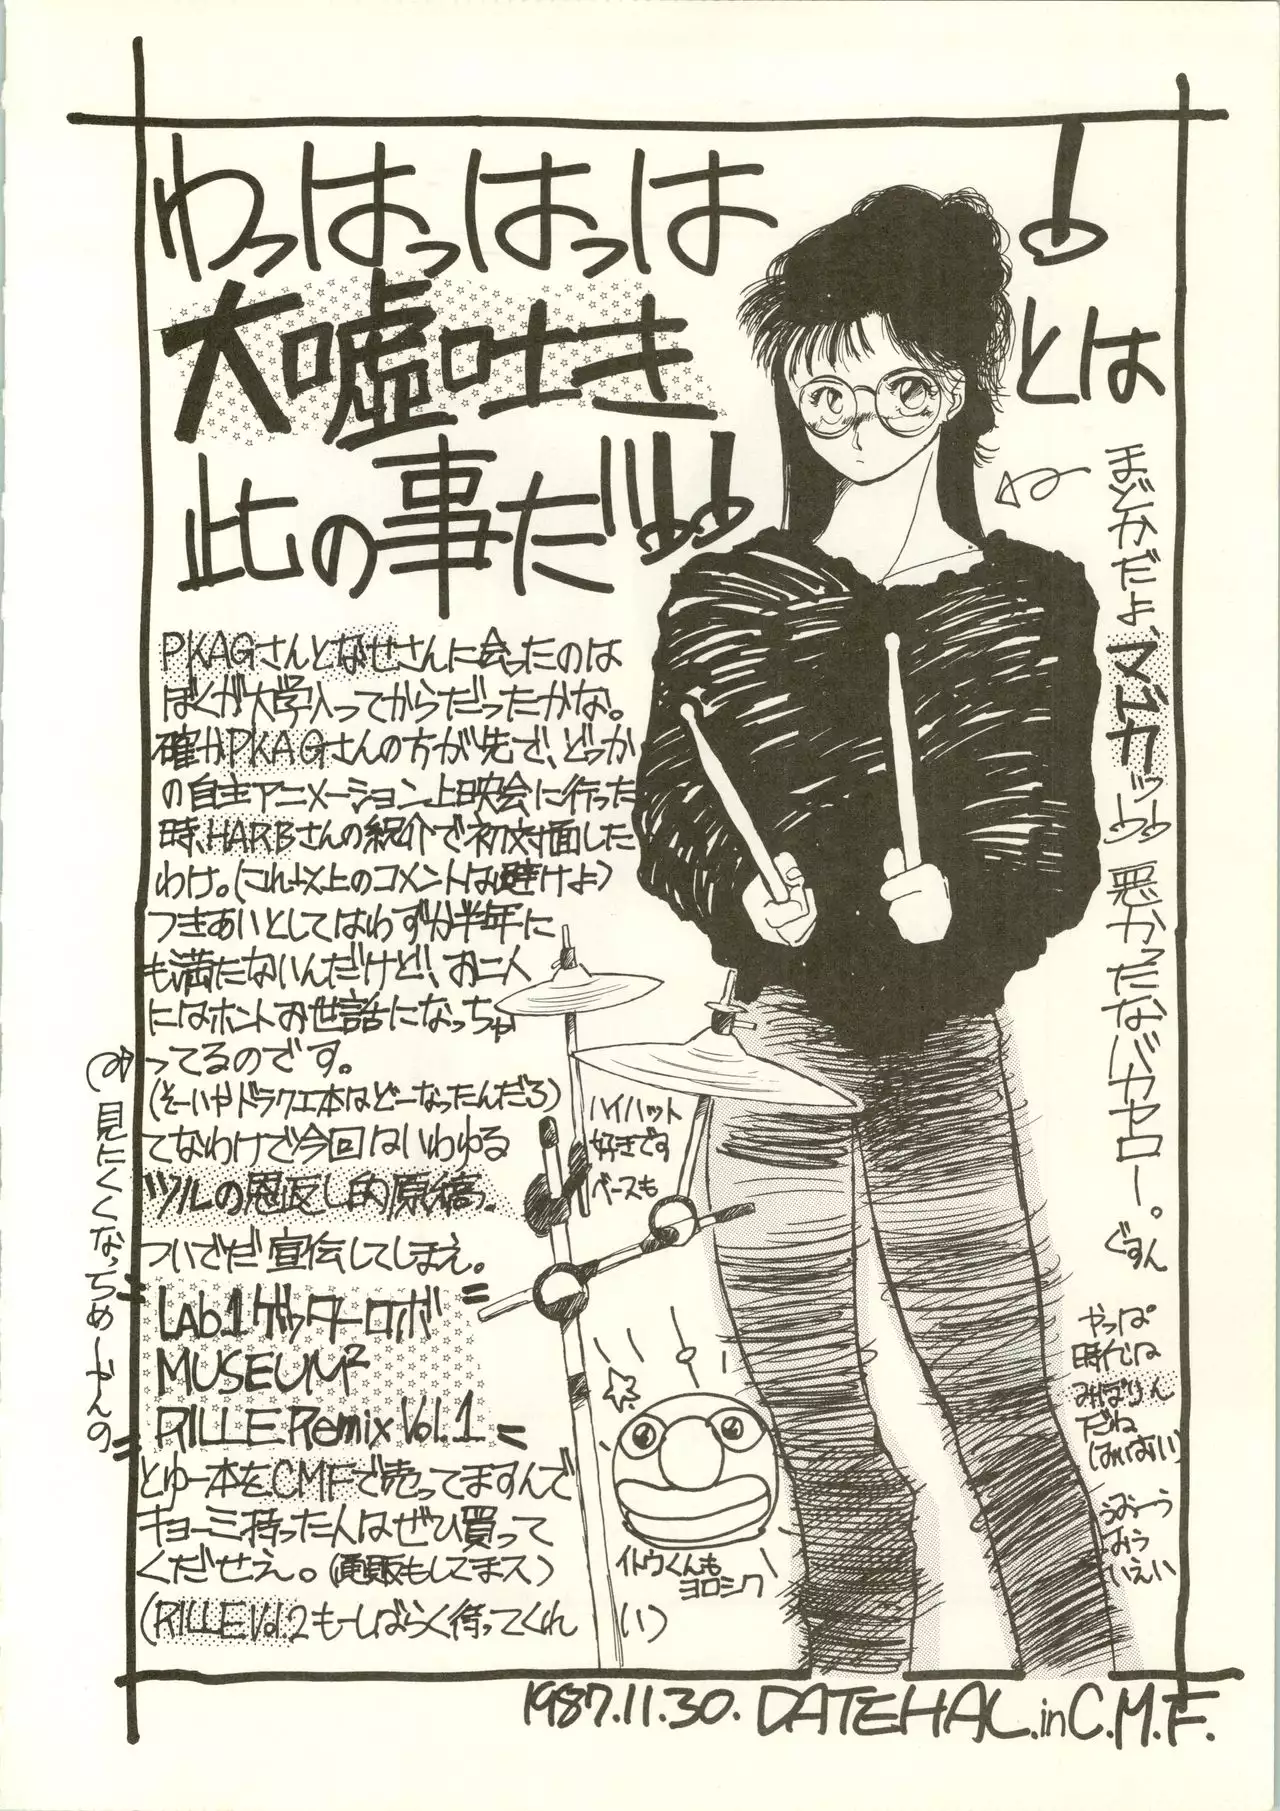 わっはっはっは!
とは
大嘘吐き
此の事だ!!!
PKAGさんとなせさんに会ったのは
ぼくが大学入ってからだったかな。
確かPKAGさんの方が先で、どっか
の自主アニメーション上映会に行った
時、HARBさんの紹介で初対面した
わけ。(これ以上のコメントは避けよ)
つきあいとしてはわずか半年に
も満たないんだけど、お二人
にはホントお世話になっちゃ
ってるのです。
(そーいやドラクエ本はどーなったんだろ)
てなわけで今回はいわゆる
ツルの恩返し的原稿。
ついでだ宣伝してしまえ。
Lab.1ゲッターロボ
MUSEUM²
RILLE Remix Vol.1
とゆー本をCMFで売ってますんで
キョーミ持った人はぜひ買って
くだせえ。(通販もしてまス)
(RILLE Vol.2もーしばらく待ってくれい)
見にくくなっちめーやんの
ハイハット
好きです
ベースも
イトウくんも
ヨロシク
まどかだよ、マドカッ!! 悪かったなバカヤロー。
ぐすん
やっぱ
時代は
みぽりん
だね
(はいはい)
うおーう
みう
いえい
1987.11.30. DATEHAL.in C.M.F.